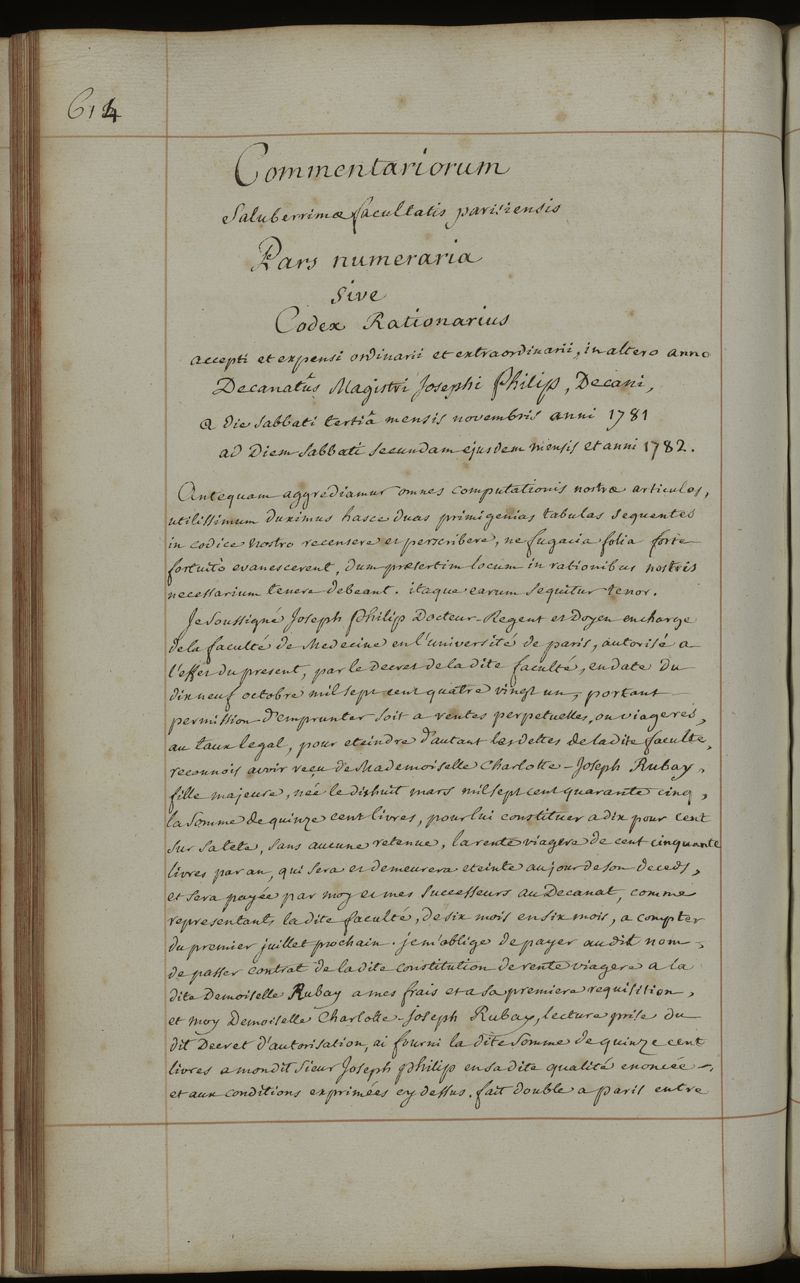 614
Commentariorum
Saluberrimæ facultatis parisiensis
Pars numeraria
Sive
Codex Rationarius
accepti et expensi ordinarii et extraordinarii, in altero anno
Decanatûs Magistri Josephi Philip, Decani,
a die Sabbati tertiâ mensis novembris anni 1781
ad Diem Sabbati secundam ejusdem mensis et anni 1782.
Antequam aggrediamur omnes computationis nostræ articulos,
utilissimum duximus hasce duas primigenias tabulas sequentes
in codice nostro recensere et perscribere, ne fugacia folia forte
fortuitò evanescerent, dum præsertim locum in rationibus nostris
necessarium tenere debeant. itaque earum sequitur tenor.
Je Soussigné Joseph Philip Docteur-Regent et Doyen en charge
de la faculté de Medecine en l'université de paris, autorisé a
l'effet du present, par le Decret de la dite faculté, en date du
dix neuf octobre mil sept cent quatre vingt un, portant
permission d'emprunter soit a rentes perpetuelles, ou viageres,
au taux legal, pour eteindre d'autant les dettes de la dite faculté,
reconnois avoir reçu de Mademoiselle Charlotte-Joseph Rubay,
fille majeure, née le dixhuit mars mil sept cent quarante cinq,
la Somme de quinze cent livres, pour lui constituer a dix pour cent
sur sa tete, sans aucune retenue, la rente viagere de cent cinquante
livres par an, qui sera et demeurera eteinte au jour de son deceds,
et sera payée par moy et mes successeurs au Decanat, comme
representants la dite faculté, de six mois en six mois, a compter
du premier juillet prochain. je m'oblige de payer au dit nom,
de passer contrat de la dite constitution de rente viagere a la
dite Demoiselle Rubay a mes frais et a sa premiere requisition,
et moy Demoiselle Charlotte-Joseph Rubay, lecture prise du
dit Decret d'autorisation, ai fourni la dite Somme de quinze cent
livres a mondit Sieur Joseph Philip en sa dite qualité enoncée
et aux conditions exprimées cy dessus. fait double a paris entre